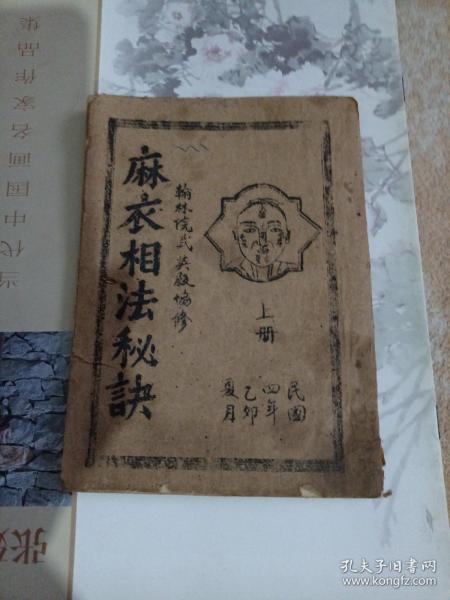 麻衣相法秘訣
翰林院武英殿協修
上册
民國
四年
乙卯
夏月
当代中国画名家作品集
张
孔夫子旧书网
www.kongfz.com